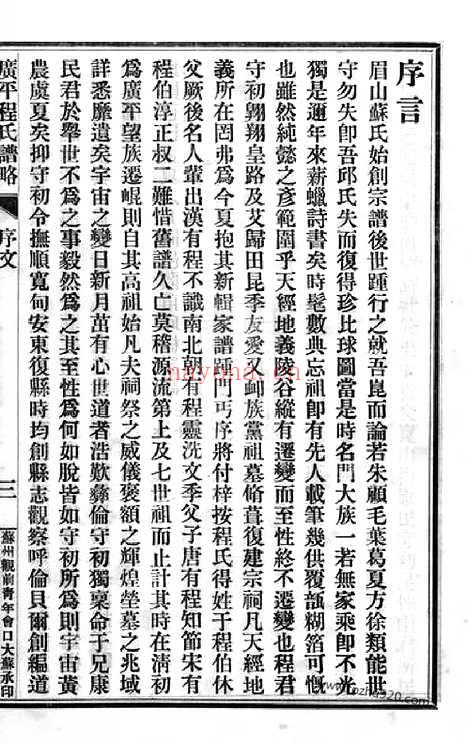 序言
眉山蘇氏始創宗譜後世踵行之就吾崑而論若朱顧毛葉葛夏方徐類能世
守勿失卽吾邱氏失而復得珍比球圖當是時名門大族一若無家乘卽不光
獨是邇年來薪蠟詩書矣時髦數典忘祖卽有先人載筆幾供覆瓿糊窗可慨
也雖然純懿之彥範圍乎天經地義陵谷縱有遷變而至性終不遷變也程君
守初翺翔皇路及艾歸田昆季友愛又卹族黨祖墓脩葺復建宗祠凡天經地
義所在罔弗爲今夏抱其新輯家譜踵門丐序將付梓按程氏得姓于程伯休
父厥後名人輩出漢有程不識南北朝有程靈洗文季父子唐有程知節宋有
程伯淳正叔二難惜舊譜久亡莫稽源流第上及七世祖其時在清初
爲廣平望族遷崐則自其高祖始凡夫祠祭之威儀褒額之輝煌塋墓之兆域
詳悉靡遺矣宇宙之變日新月茁有心世道者浩歎彝倫守初獨稟命于兄康
民君於舉世不爲之事毅然爲之其至性爲何如脫皆如守初所爲則宇宙黃
農虞夏矣抑守初令撫順寬甸安東復縣時均創縣志觀察呼倫貝爾創編道
廣平程氏譜略
序文
三
蘇州觀前青年會口大蘇承印